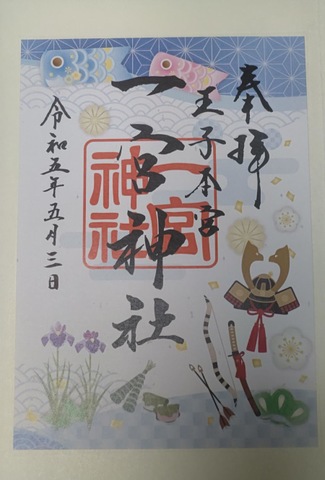 奉拝
王子本宮
一宮神社
一宮神社
令和五年五月三日